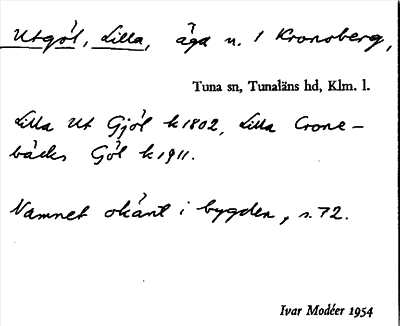 Utgöl, Lilla, äga n. / Kronsberg,
Tuna sn, Tunaläns hd, Klm. l.
Lilla Ut Gjöl k 1802, Lilla Crone-
bäcks Göl k 1911.
Namnet okänt i bygden, s. 72.
Ivar Modéer 1954